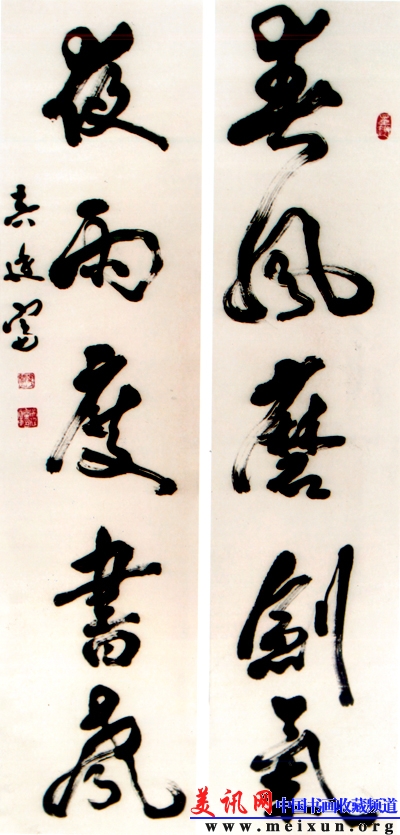 春風磨劍氣
夜雨度書聲
美讯网
中国书画收藏频道
www.meixun.org